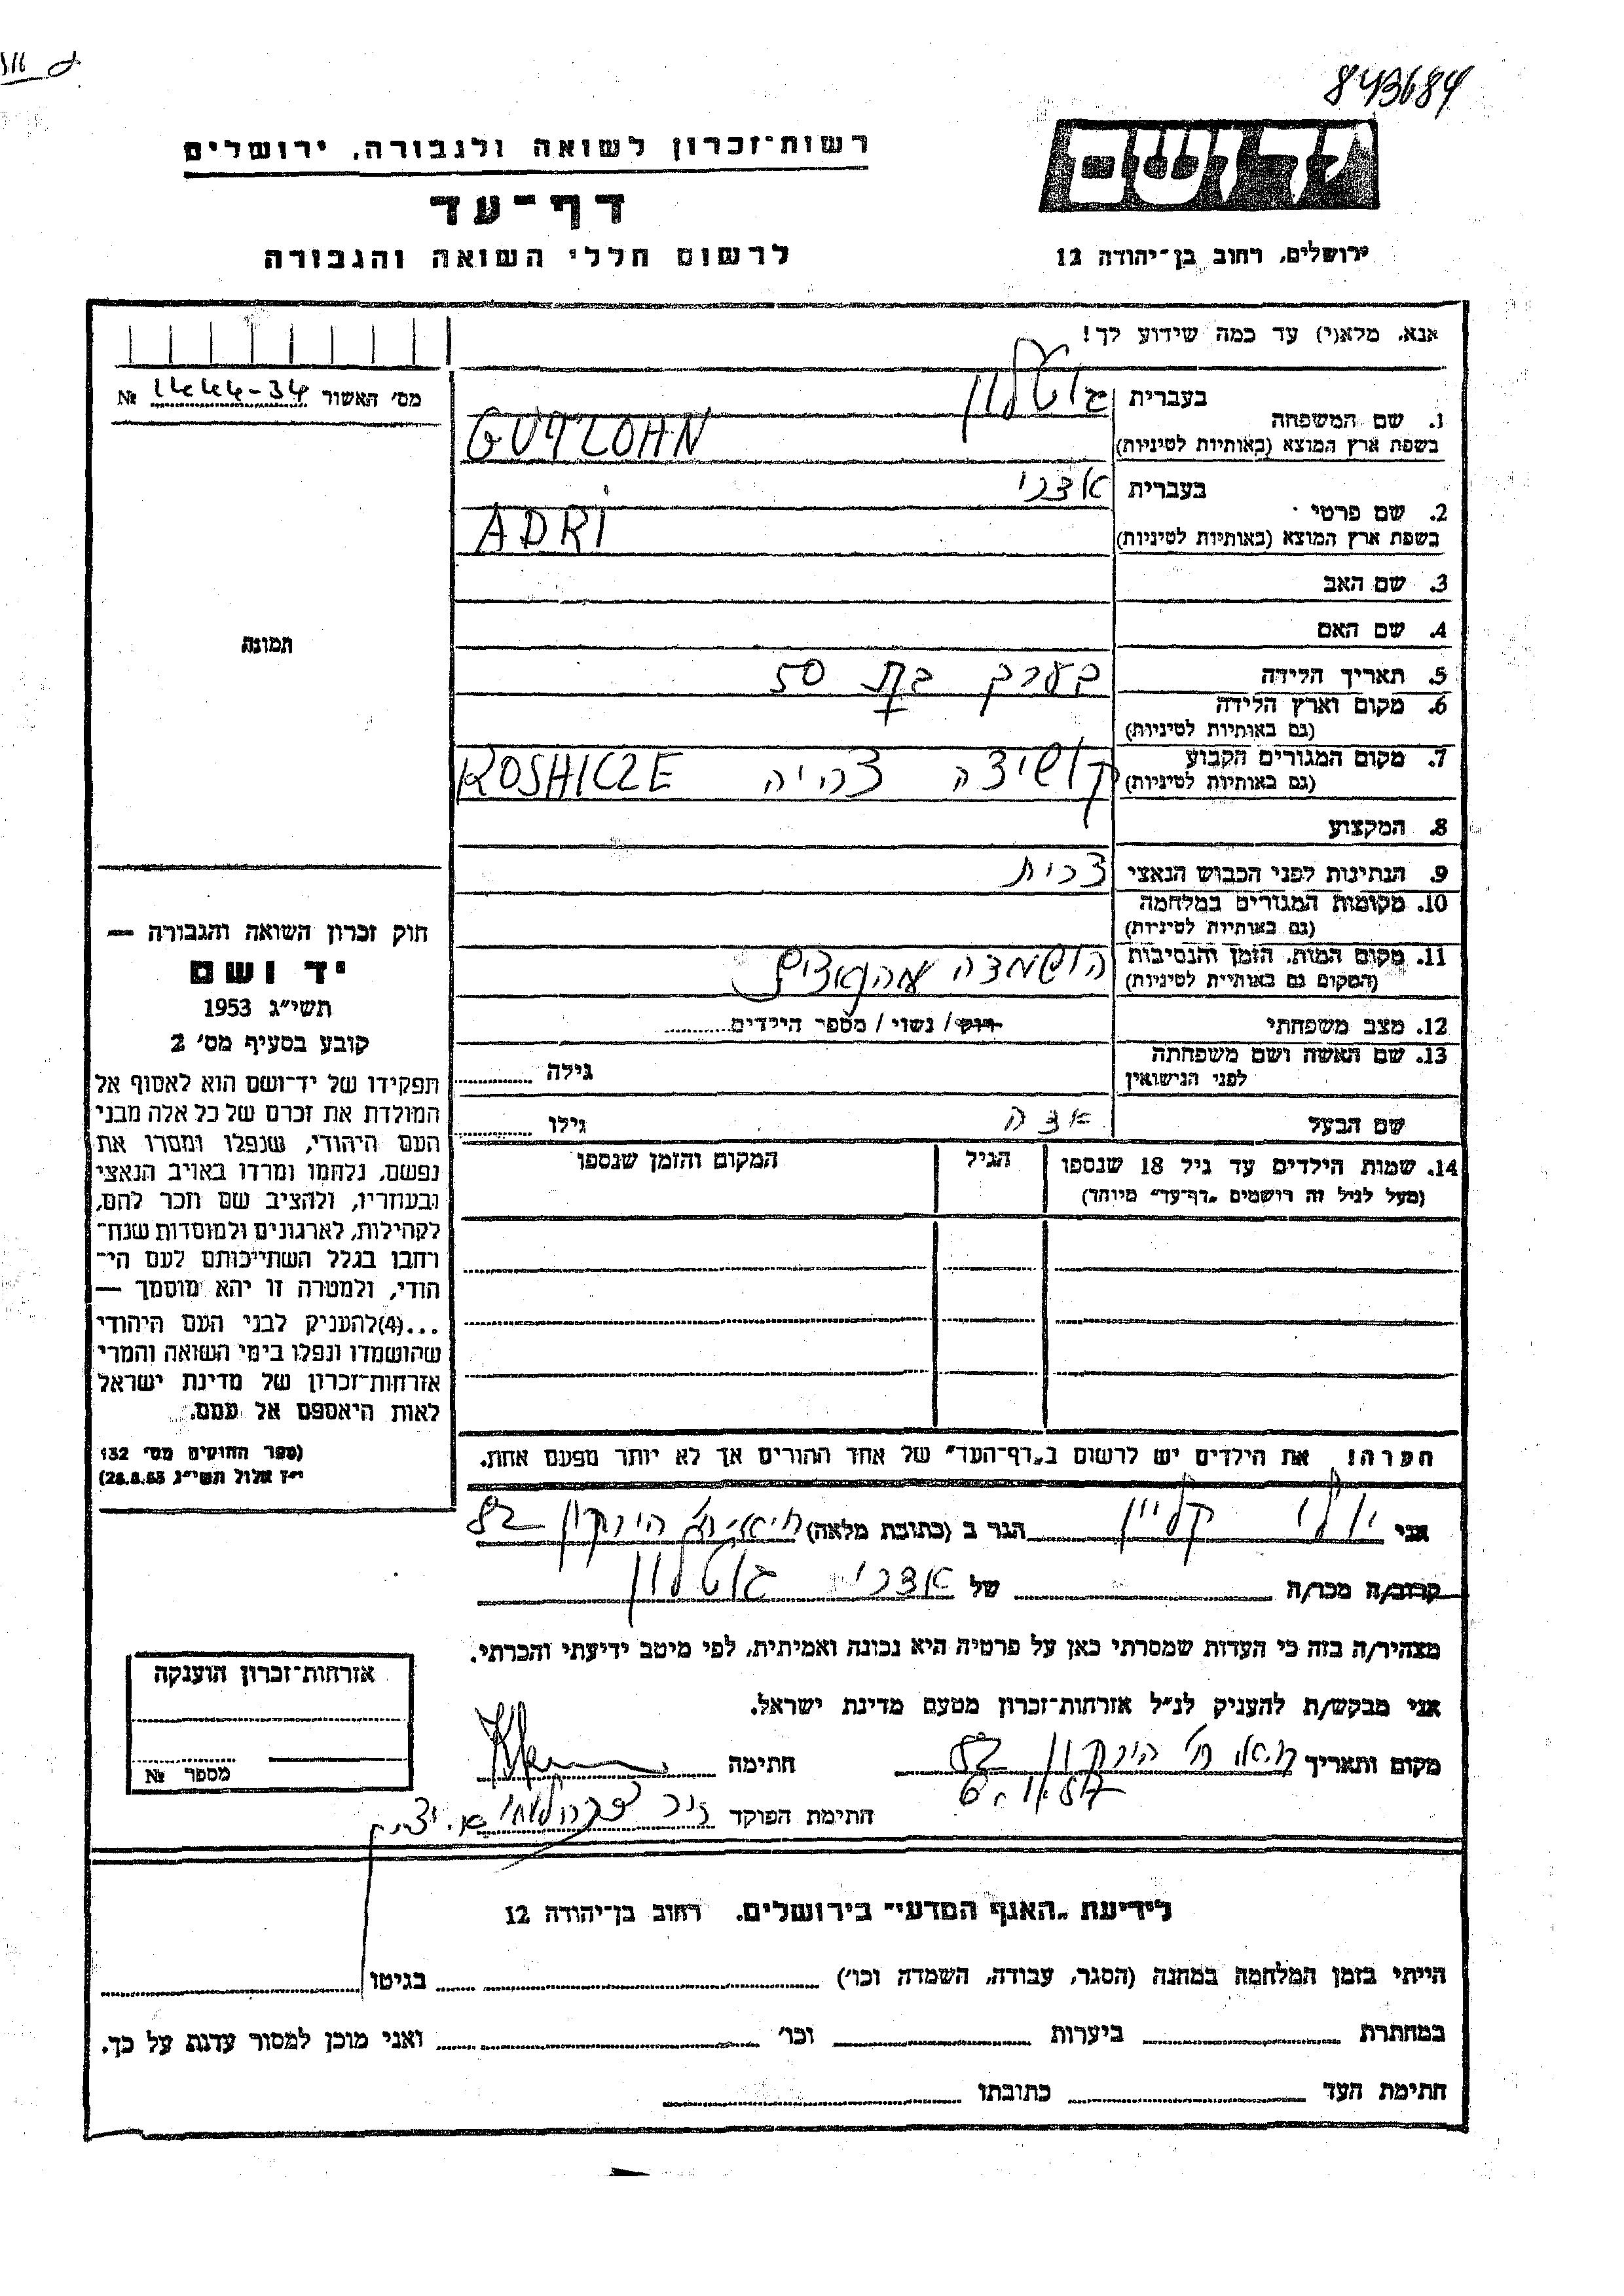 843684
רשות־זכרון לשואה ולגבורה, ירושלים
דף־עד
לרשום חללי השואה והגבורה
ירושלים, רחוב בן־יהודה 12
אנא, מלא(י) עד כמה שידוע לך!
מס' האשור 1444-34 №
1. שם המשפחה
בעברית גוטלון
בשפת ארץ המוצא (באותיות לטיניות) GUTLOHN
2. שם פרטי
בעברית אדרי
בשפת ארץ המוצא (באותיות לטיניות) ADRI
3. שם האב
4. שם האם
תמונה
5. תאריך הלידה בערך בת 50
6. מקום וארץ הלידה
(גם באותיות לטיניות)
7. מקום המגורים הקבוע
(גם באותיות לטיניות) קושיצה צ'כיה KOSHICZE
8. המקצוע
9. הנתינות לפני הכבוש הנאצי צ'כית
10. מקומות המגורים במלחמה
(גם באותיות לטיניות)
11. מקום המות, הזמן והנסיבות
(המקום גם באותיית לטיניות) הושמדה מהנאצים
12. מצב משפחתי רוק / נשוי / מספר הילדים
13. שם האשה ושם משפחתה
לפני הנישואין גילה
שם הבעל גילו
14. שמות הילדים עד גיל 18 שנספו
(מעל לגיל זה רושמים „דף־עד” מיוחד)
הגיל
המקום והזמן שנספו
חוק זכרון השואה והגבורה —
יד ושם
תשי״ג 1953
קובע בסעיף מס' 2
תפקידו של יד־ושם הוא לאסוף אל
המולדת את זכרם של כל אלה מבני
העם היהודי, שנפלו ומסרו את
נפשם, נלחמו ומרדו באויב הנאצי
ובעוזריו, ולהציב שם וזכר להם,
לקהילות, לארגונים ולמוסדות שנח־
רחבו בגלל השתייכותם לעם הי־
הודי, ולמטרה זו יהא מוסמך —
...(4)להעניק לבני העם היהודי
שהושמדו ונפלו בימי השואה והמרי
אזרחות־זכרון של מדינת ישראל
לאות היאספם אל עמם.
(ספר החוקים מס' 132
י״ז אלול תשי״ג 28.8.53)
הערה! את הילדים יש לרשום ב„דף־העד” של אחד ההורים אך לא יותר מפעם אחת.
אני יולי קליין הגר ב (כתובת מלאה) הירקון 82
קרוב/ה מכר/ה של אדרי גוטלון
מצהיר/ה בזה כי העדות שמסרתי כאן על פרטיה היא נכונה ואמיתית, לפי מיטב ידיעתי והכרתי.
אני מבקש/ת להעניק לנ״ל אזרחות־זכרון מטעם מדינת ישראל.
מקום ותאריך הירקון 82
חתימה
חתימת הפוקד
אזרחות־זכרון הוענקה
מספר №
לידיעת „האגף המדעי” בירושלים, רחוב בן־יהודה 12
הייתי בזמן המלחמה במחנה (הסגר, עבודה, השמדה וכו') בגיטו
במחתרת ביערות וכו' ואני מוכן למסור עדות על כך.
חתימת העד כתובתו